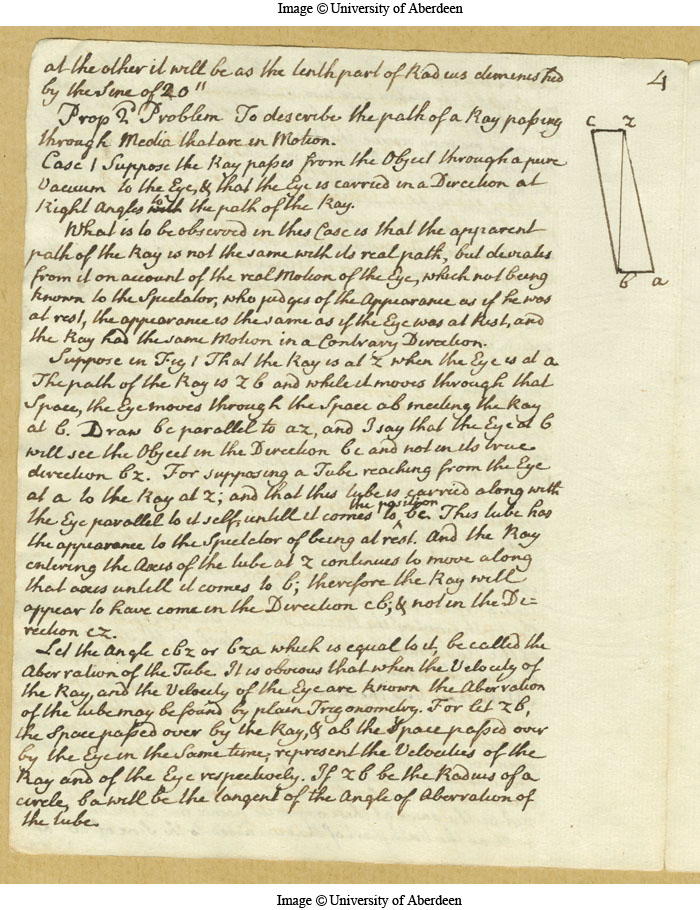 Image © University of Aberdeen
4
at the other it will be as the tenth part of Radius deminished
by the Sine of 20"
Prop 2d Problem To describe the path of a Ray passing
through Media that are in Motion.
Case 1 Suppose the Ray passes from the Object through a pure
Vacuum to the Eye, & that the Eye is carried in a Direction at
Right Angles to the path of the Ray.
What is to be observed in this Case is that the apparent
path of the Ray is not the same with its real path, but deviates
from it on account of the real Motion of the Eye, which not being
known to the Spectator, who judges of the Appearance as if he was
at rest, the appearance is the same as if the Eye was at Rest, and
the Ray had the same Motion in a Contrary Direction.
Suppose in Fig 1 That the Ray is at z when the Eye is at a
The path of the Ray is z b and while it moves through that
Space, the Eye moves through the Space ab meeting the Ray
at b. Draw bc parallel to az, and I say that the Eye at b
will see the Object in the Direction bc and not in its true
direction bz. For supposing a Tube reaching from the Eye
at a to the Ray at z; and that this tube is carried along with
the Eye parallel to it self, untill it comes to the position bc. This tube has
the appearance to the Spectator of being at rest. And the Ray
entering the Axis of the tube at z continues to move along
that axis untill it comes to b; therefore the Ray will
appear to have come in the Direction cb; & not in the Di=
rection cz.
Let the Angle cbz or bza which is equal to it, be called the
Aberration of the Tube. It is obvious that when the Velocity of
the Ray, and the Velocity of the Eye are known the Aberration
of the tube may be found by plain Trigonometry. For let zb,
the Space passed over by the Ray, & ab the Space passed over
by the Eye in the Same time, represent the Velocities of the
Ray and of the Eye respectively. If zb be the Radius of a
circle, ba will be the tangent of the Angle of Aberration of
the tube.
c z
b a
Image © University of Aberdeen